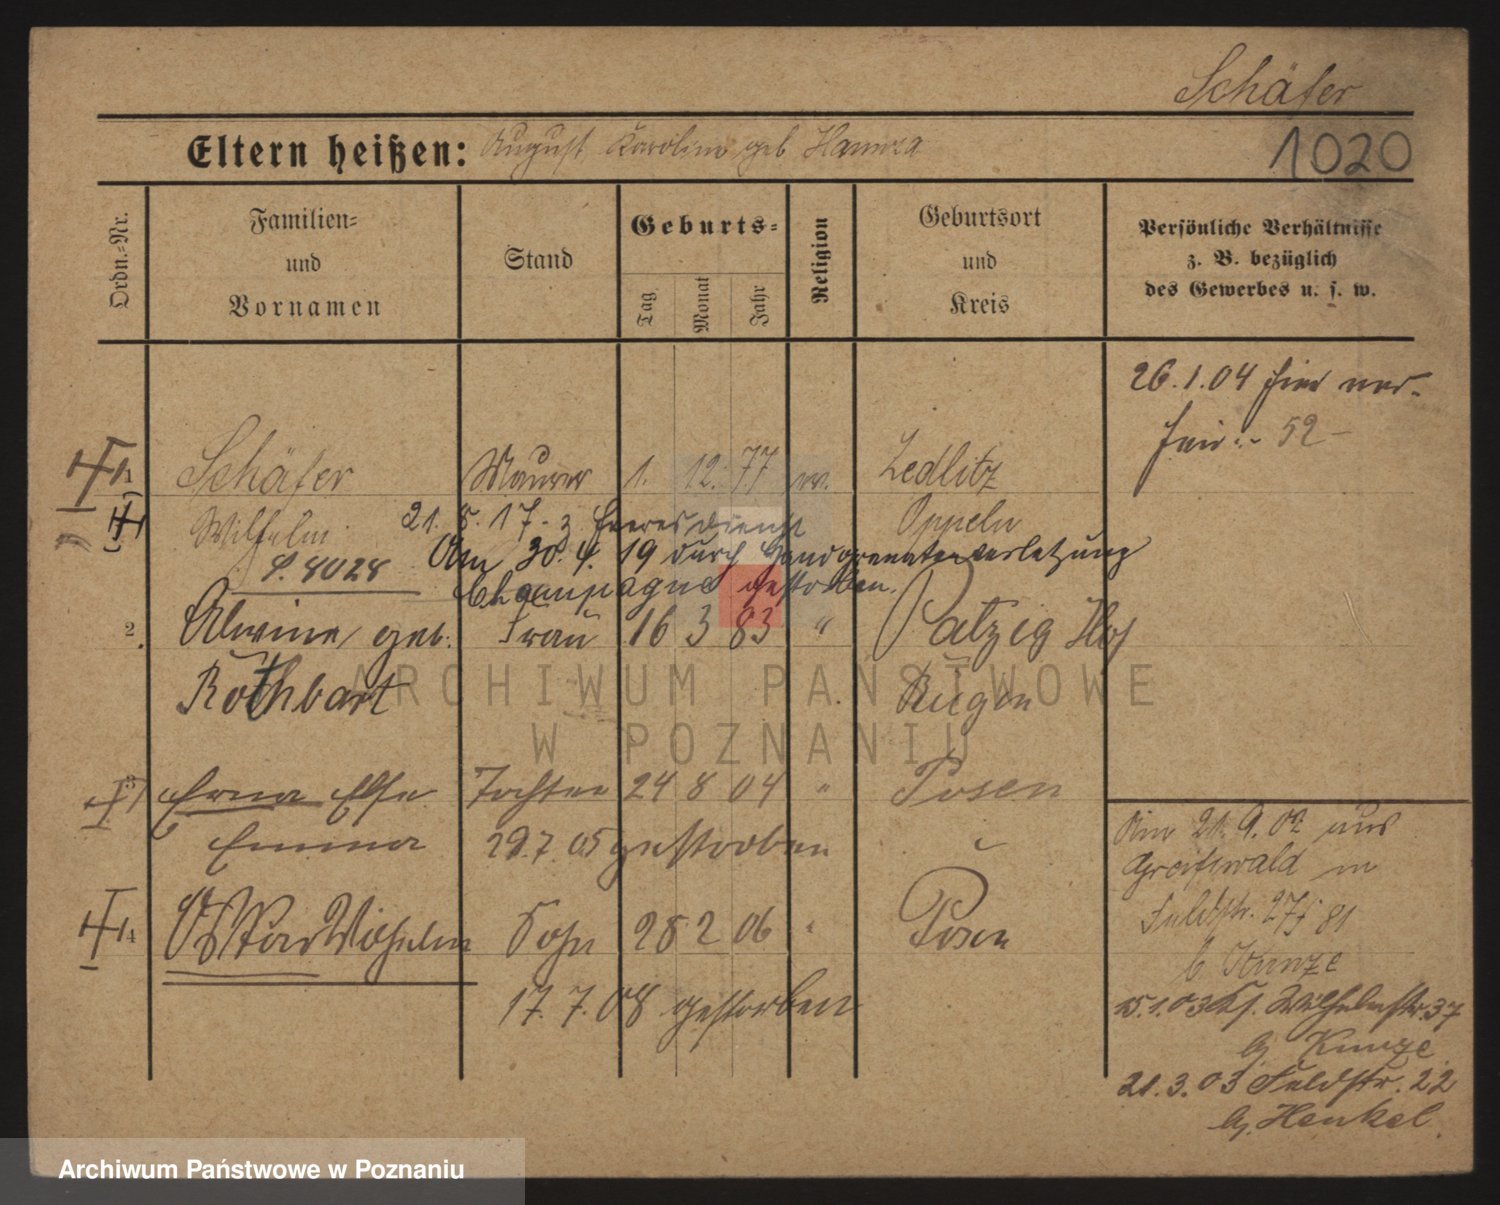 Schäfer
Eltern heißen: August, Karoline geb
1020
Ordn.-Nr.
Familien-
und
Vornamen
Stand
Geburts-
Tag
Monat
Jahr
Religion
Geburtsort
und
Kreis
Persönliche Verhältnisse
z. B. bezüglich
des Gewerbes u. s. w.
26.1.04 hier ver-
heir. 52
1 Schäfer Maurer 1. 12. 77 ev. Zedlitz
Wilhelm 21. 8. 17 z Heeresdienst Oppeln
Am 30. 4. 19 durch Handgranatenverletzung
4028
Champagne gestorben.
2. Alwine, geb. Frau 16 3 83 " Patzig Hof
Rothbart Rügen
3 Erna Else Tochter 24 8 04 " Posen
Emma 29.7.05 gestorben
4 Oskar Wilhelm Sohn 28 2 06 " Posen
17. 7. 08 gestorben
Am 21. 9. 02 aus
Greifswald in
Feldstr. 27
b Kunze
15.1.03 Wilhelmstr. 37
bj Kunze
21.3.03 Feldstr. 22
bj Henkel
ARCHIWUM PAŃSTWOWE
W POZNANIU
Archiwum Państwowe w Poznaniu